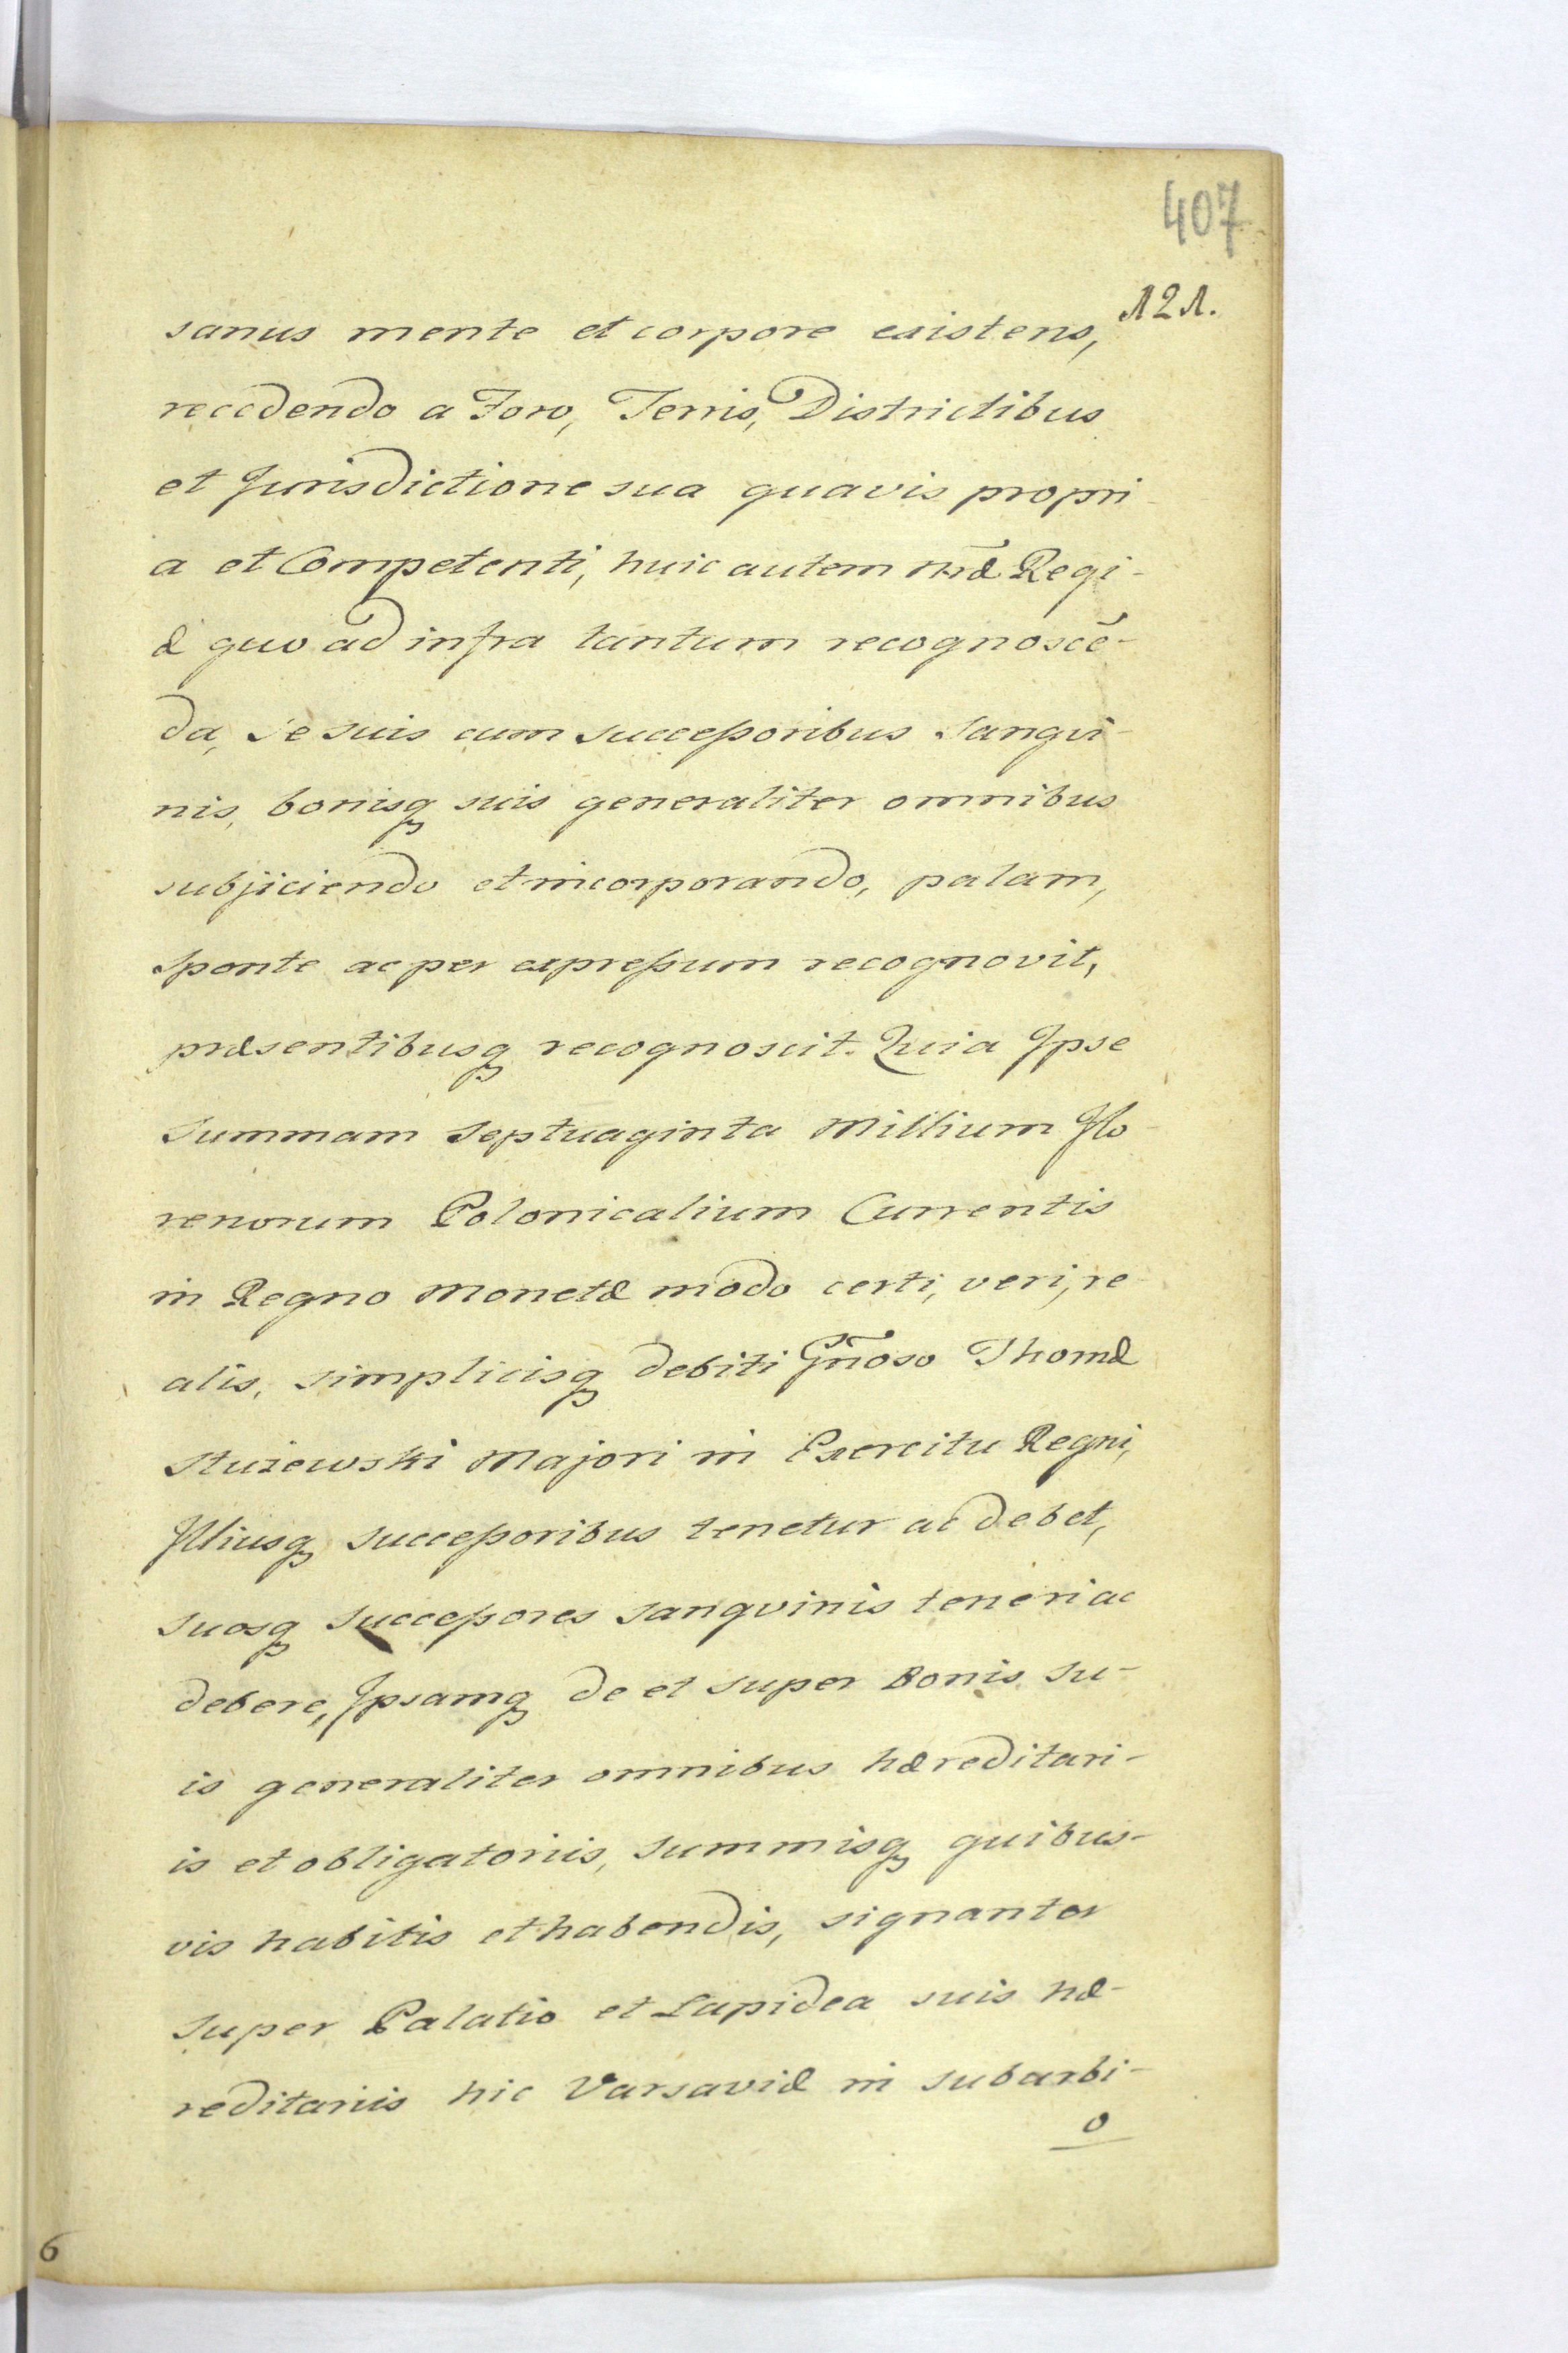 407
121.
sanus mente et corpore existens,
recedendo a Foro, Terris, Districtibus
et Jurisdictione sua quavis propri-
a et Competenti, huic autem Mrae Regi-
æ quo ad infra tantum recognoscē-
da, se suis cum successoribus sangvi-
nis, bonisq suis generaliter omnibus
subjiciendo et incorporando, palam,
sponte ac per expressum recognovit,
præsentibusq recognoscit. Quia Ipse
summam septuaginta Millium Flo-
renorum Polonicalium Currentis
in Regno Monetæ modo certi, veri, re-
alis, simplicisq debiti Gñoso Thomæ
Majori in Exercitu Regni,
Illiusq successoribus tenetur ac debet,
suosq successores sangvinis teneri ac
debere, Ipsamq de et super Bonis su-
is generaliter omnibus hæreditari-
is et obligatoriis, summisq quibus-
vis habitis et habendis, signanter
super Palatio et Lapidea suis hæ-
reditariis hic Varsaviæ in subarbi-
o
6